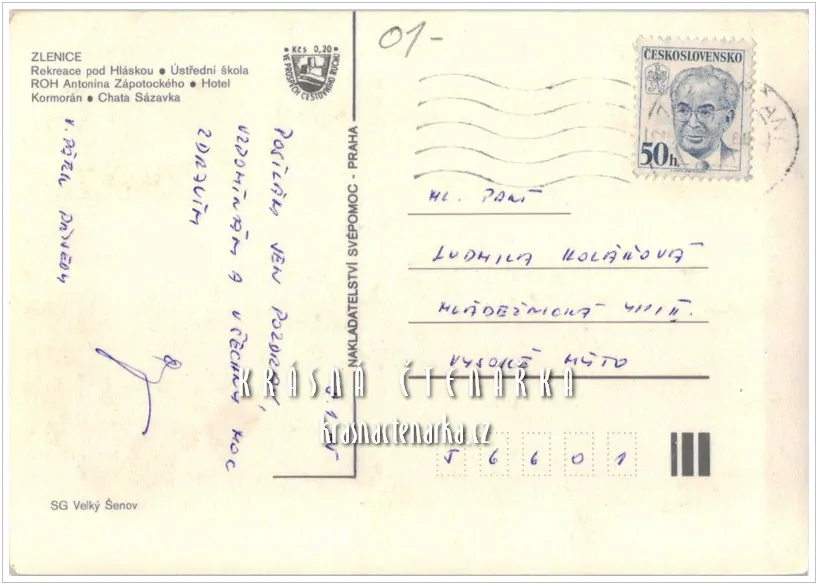 ZLENICE
Rekreace pod Hláskou ● Ústřední škola
ROH Antonína Zápotockého ● Hotel
Kormorán ● Chata Sázavka
Kčs 0,20
VE PROSPĚCH CESTOVNÍHO RUCHU
01-
ČESKOSLOVENSKO
50h
POSÍLÁM JEN POZDRAV,
VZPOMÍNÁM A VŠECHNY MOC
ZDRAVÍM
NAKLADATELSTVÍ SVÉPOMOC - PRAHA
LUDMILA KOLÁŘOVÁ
MLÁDEŽNICKÁ
VYSOKÉ MÝTO
56601
KRÁSNÁ ČTENÁRKA
krasnactenarka.cz
SG Velký Šenov